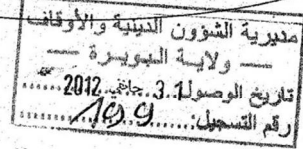 مديرية الشؤون الدينية والأوقاف
— ولاية البويرة —
تاريخ الوصول: 31 جانفي 2012
رقم التسجيل: 109